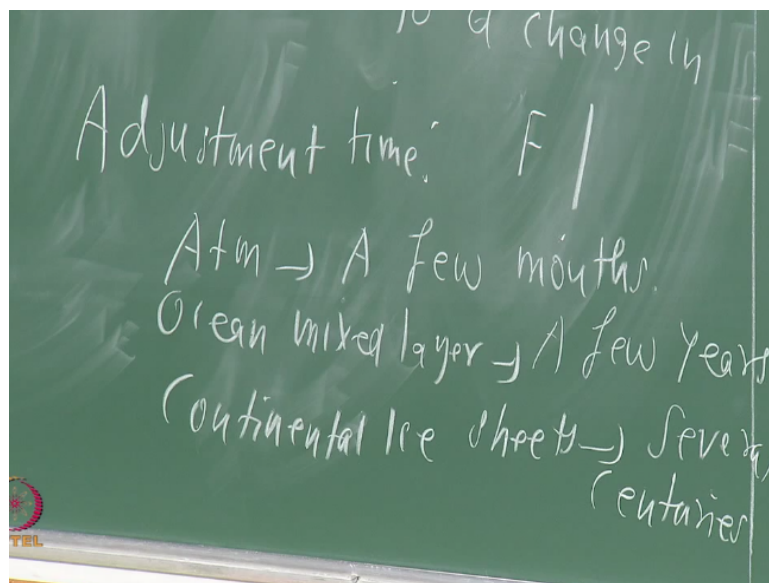 to a change in
Adjustment time: F
Atm → A few months.
Ocean mixed layer → A few years
Continental Ice sheets → Several
Centuries
TEL